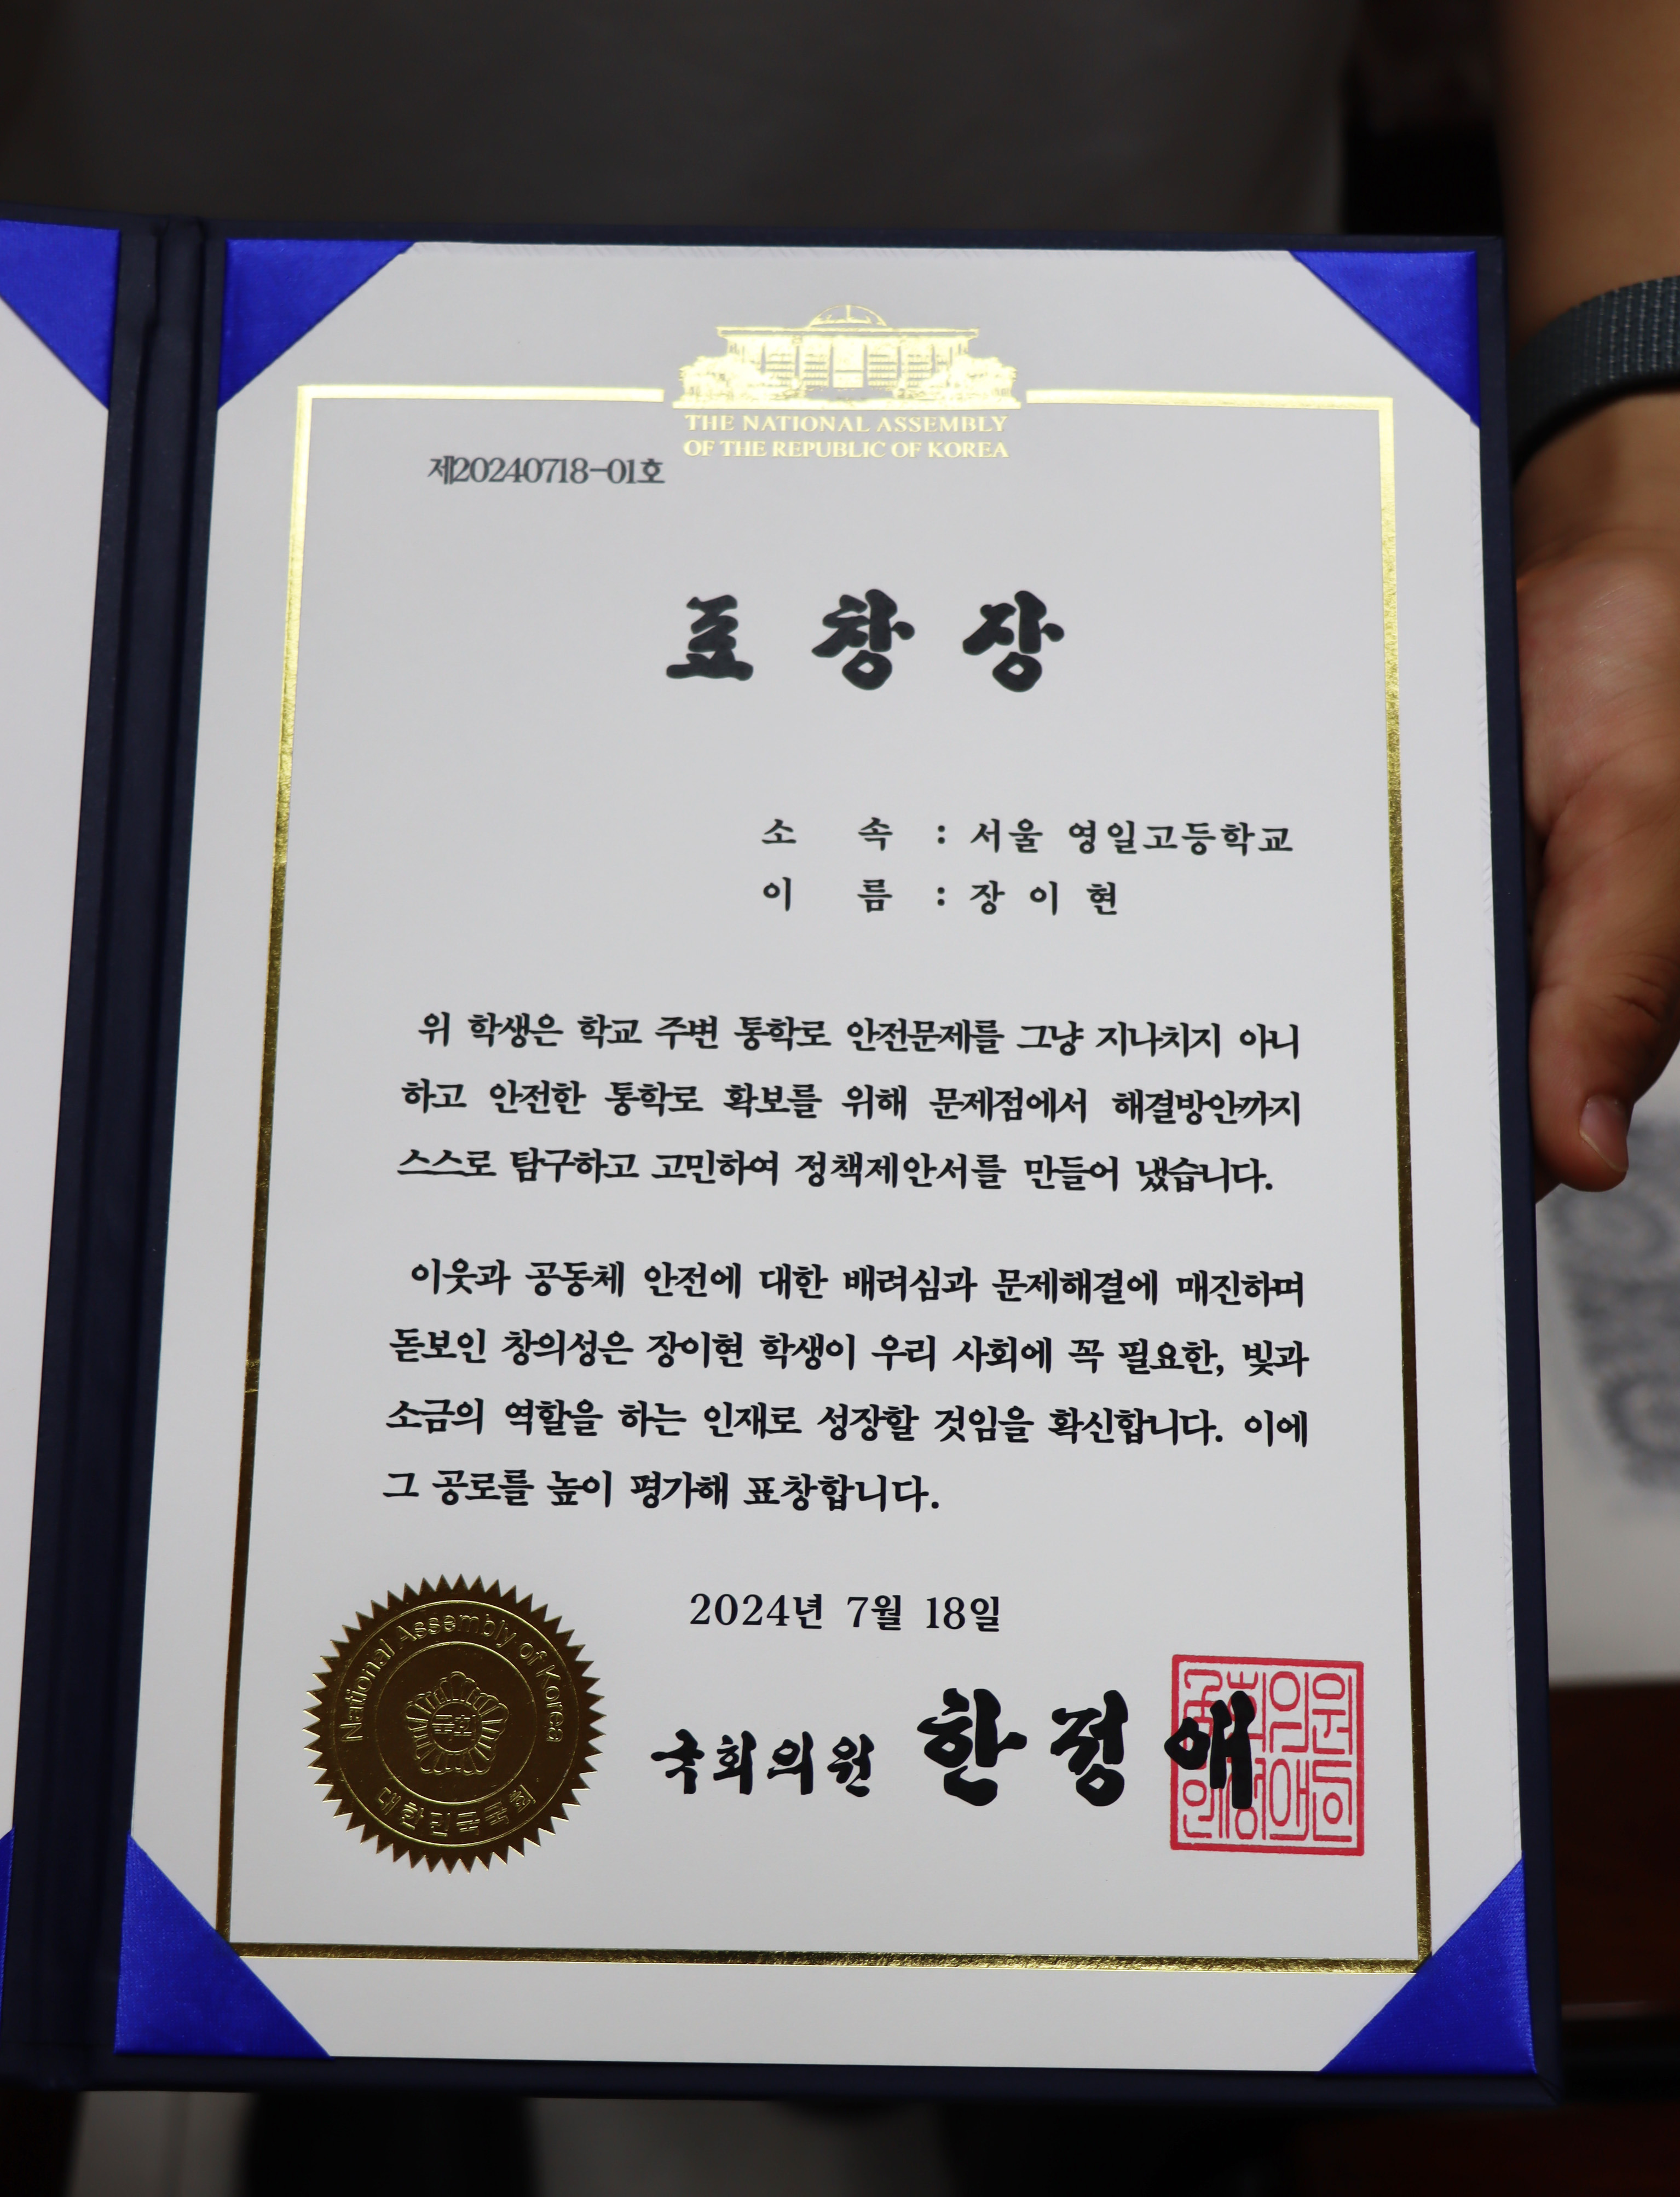 THE NATIONAL ASSEMBLY
OF THE REPUBLIC OF KOREA
제20240718-01호
표 창 장
소 속 : 서울 영일고등학교
이 름 : 장 이 현
위 학생은 학교 주변 통학로 안전문제를 그냥 지나치지 아니
하고 안전한 통학로 확보를 위해 문제점에서 해결방안까지
스스로 탐구하고 고민하여 정책제안서를 만들어 냈습니다.
이웃과 공동체 안전에 대한 배려심과 문제해결에 매진하며
돋보인 창의성은 장이현 학생이 우리 사회에 꼭 필요한, 빛과
소금의 역할을 하는 인재로 성장할 것임을 확신합니다. 이에
그 공로를 높이 평가해 표창합니다.
2024년 7월 18일
국회의원 한정애
National Assembly of Korea
국회
대한민국국회